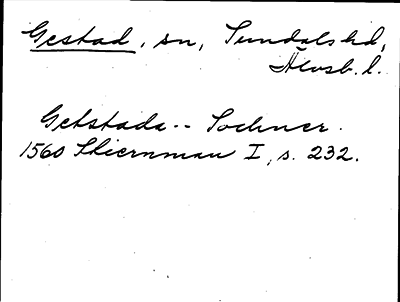 Gestad, sn, Sundals hd,
Älvsb. l.
Getstada -- Sochner.
1560 Stiernman I, s. 232.